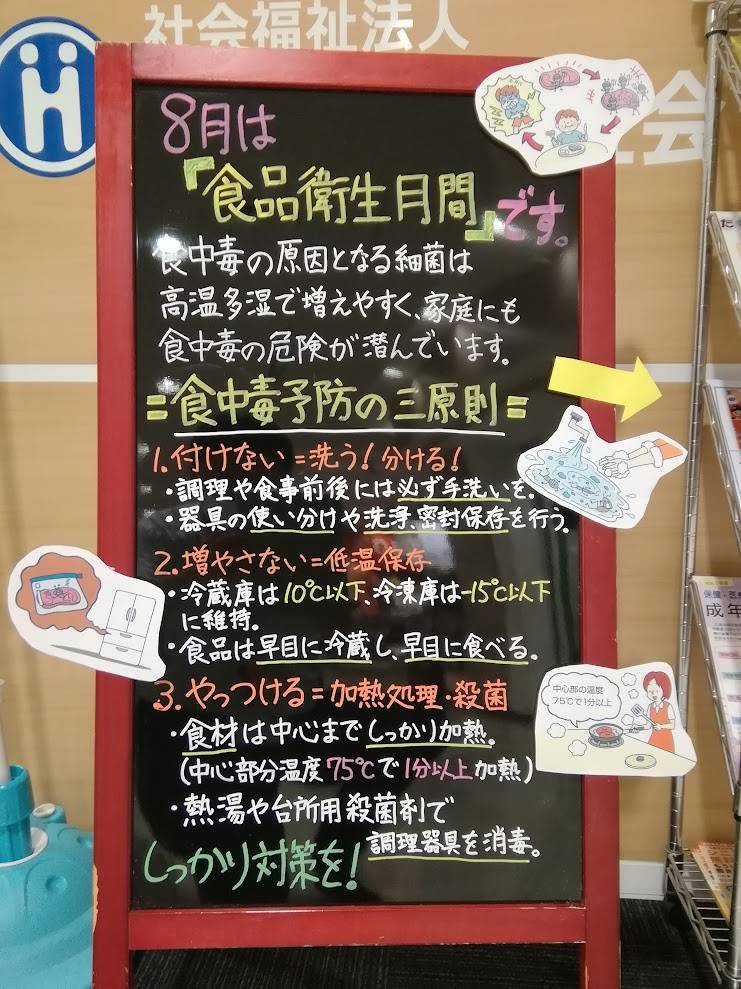 社会福祉法人
会
8月は
『食品衛生月間』です。
食中毒の原因となる細菌は
高温多湿で増えやすく、家庭にも
食中毒の危険が潜んでいます。
=食中毒予防の三原則=
1.付けない=洗う!分ける!
・調理や食事前後には必ず手洗いを。
・器具の使い分けや洗浄、密封保存を行う。
2.増やさない=低温保存
・冷蔵庫は10℃以下、冷凍庫は-15℃以下
に維持。
・食品は早目に冷蔵し、早目に食べる。
3.やっつける=加熱処理・殺菌
・食材は中心までしっかり加熱。
(中心部分温度75℃で1分以上加熱)
・熱湯や台所用殺菌剤で
調理器具を消毒。
しっかり対策を!
中心部の温度
75℃で1分以上
成年